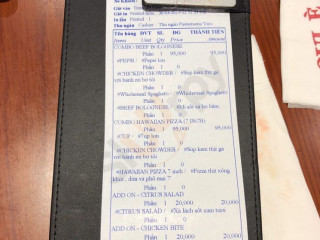 Số Khách:
Giờ vào
Giờ in
In lần Printed 1
Thu ngân Cashier
Tên hàng ĐVT SL ĐG THÀNH TIỀN
Items Unit Qty Price Amount
COMBO BEEF BOLOGNESE
Phần 1 95,000 95,000
#PEPSI / #Pepsi lon
Phần 1 0
#CHICKEN CHOWDER / #Súp kem thịt gà với bánh mì bơ tỏi
Phần 1 0
#Wholemeal Spaghetti / #Wholemeal Spaghetti
Phần 1 0
#BEEF BOLOGNESE / #
Phần 1 0
COMBO HAWAIIAN PIZZA (7 INCH)
Phần 1 95,000 95,000
#7UP / #7up lon
Phần 1 0
#CHICKEN CHOWDER / #Súp kem thịt gà
với bánh mì bơ tỏi
Phần 1 0
#HAWAIIAN PIZZA 7 inch / #Pizza thịt xông
khói , dứa và phô mai 7
Phần 1 0
ADD ON - CITRUS SALAD
Phần 1 20,000 20,000
#CITRUS SALAD / #Xà lách sốt cam tươi
Phần 1 0
ADD ON - CHICKEN BITE
Phần 1 20,000 20,000